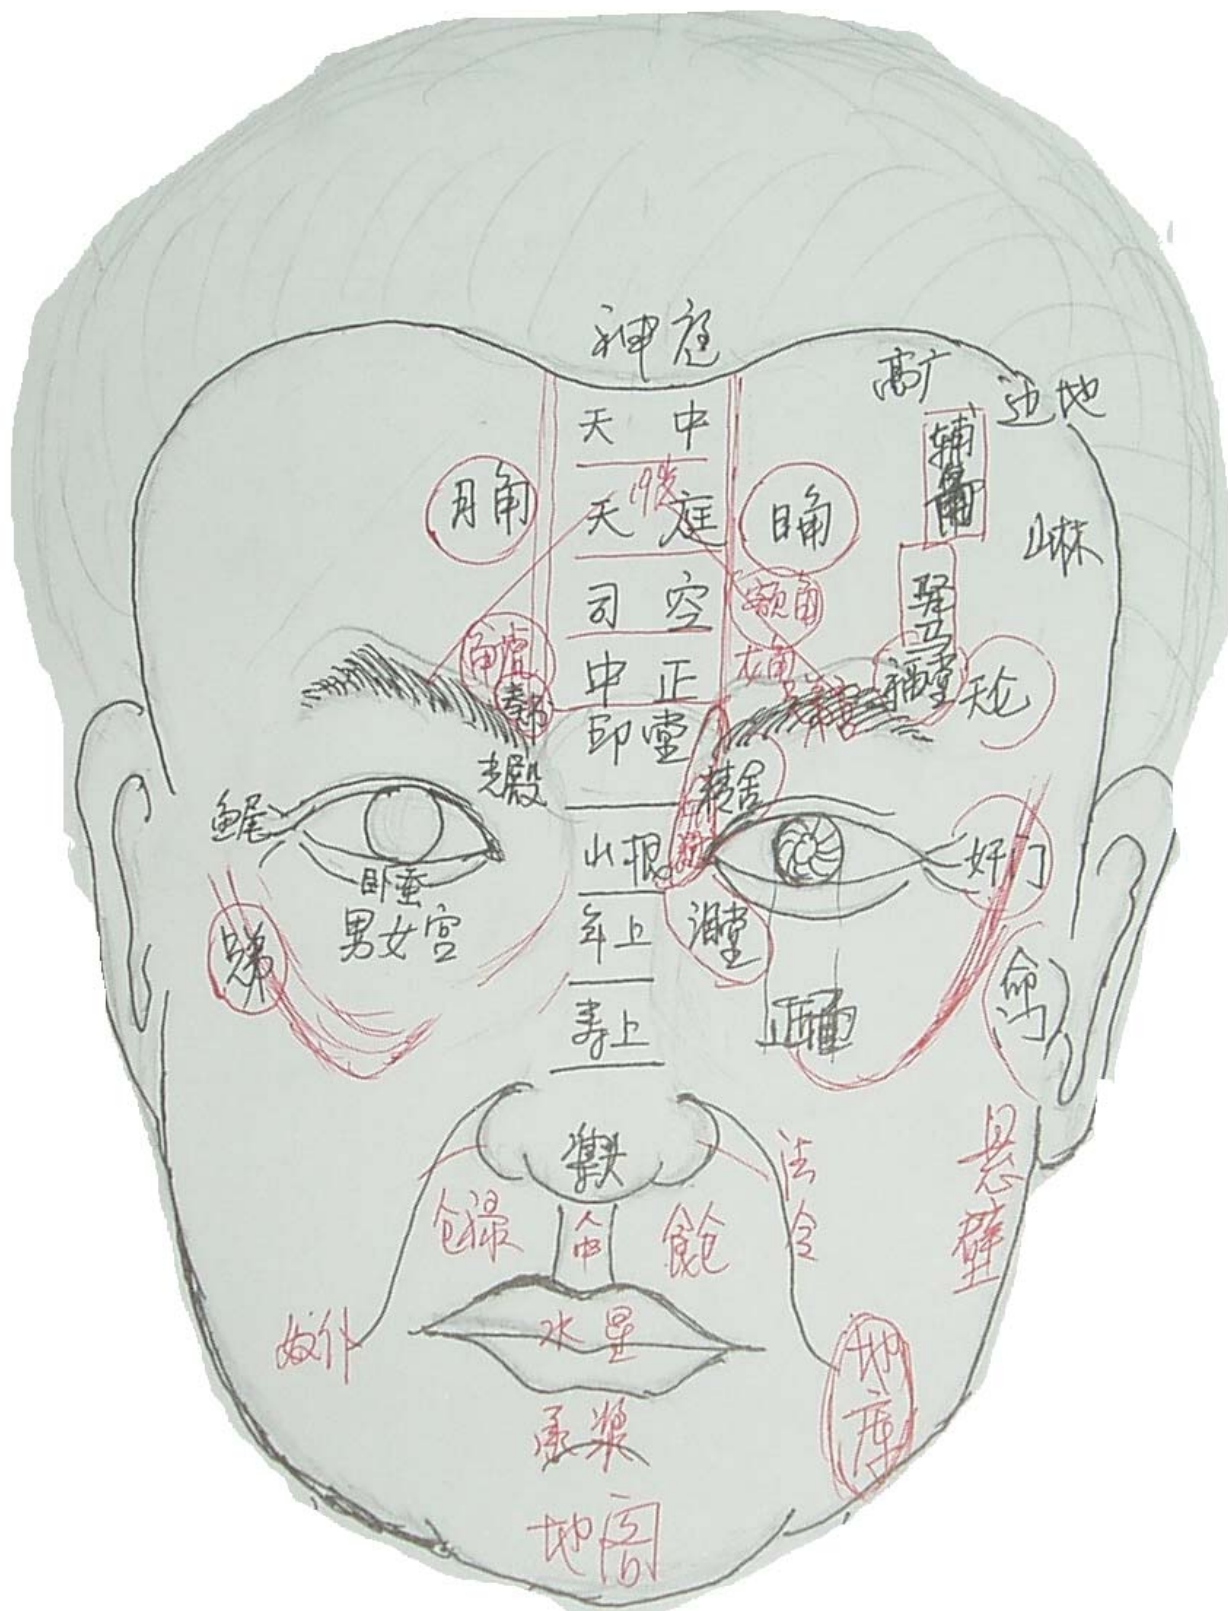 神庭
高广
边地
天中
辅角
月角
19岁
天庭
日角
山林
司空
额角
驿马
中正
龙角
福堂
天仑
印堂
光殿
精舍
鱼尾
山根
奸门
卧蚕
男女宫
年上
泪堂
命门
寿上
正面
準头
法令
悬壁
仓禄
人中
食仓
奴仆
水星
地库
承浆
地阁